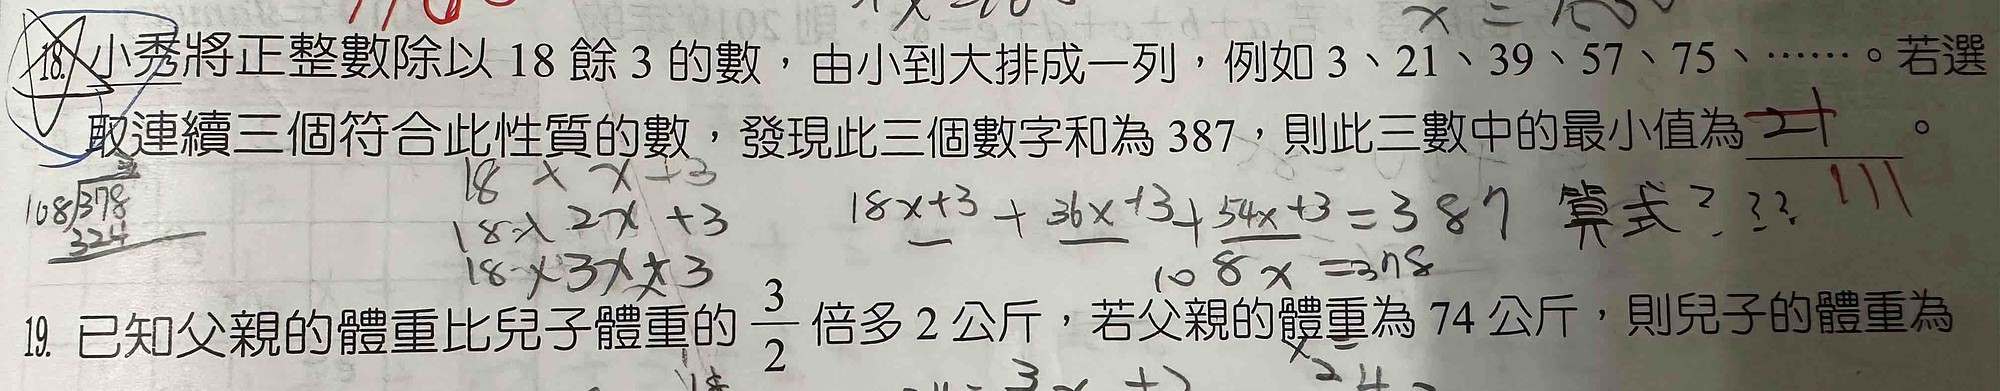 18. 小秀將正整數除以 18 餘 3 的數，由小到大排成一列，例如 3、21、39、57、75、……。若選
取連續三個符合此性質的數，發現此三個數字和為 387，則此三數中的最小值為 21 。
18 × x + 3
18 × 2x + 3
18 × 3x + 3
108 378
324
18x+3 + 36x+3 + 54x+3 = 387 算式???
108x = 378
19. 已知父親的體重比兒子體重的 3/2 倍多 2 公斤，若父親的體重為 74 公斤，則兒子的體重為